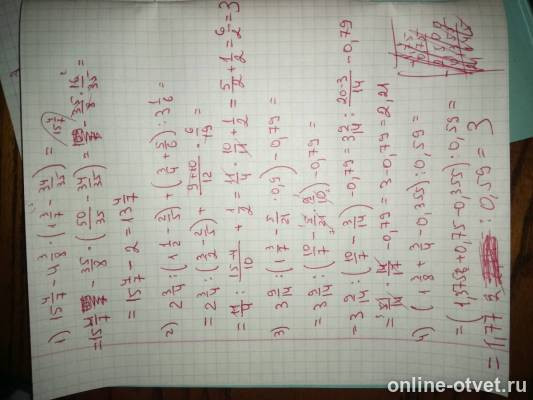 1) 15 4/7 - 4 3/8 · (1 3/7 - 34/35) =
- 35/8 · (50/35 - 34/35) = - 35/8 · 16/35 =
= 15 4/7 - 2 = 13 4/7
2) 2 3/4 : (1 1/2 - 2/5) + (3/4 + 5/6) : 3 1/6 =
= 2 3/4 : (3/2 - 2/5) + (9+10)/12 · 6/19 =
= 11/4 : (15-4)/10 + 1/2 = 11/4 · 10/11 + 1/2 = 5/2 + 1/2 = 6/2 = 3
3) 3 9/14 : (1 3/7 - 5/21 · 0,9) - 0,79 =
= 3 9/14 : (10/7 - 5/21 · 9/10) - 0,79 =
= 3 9/14 : (10/7 - 3/14) - 0,79 = 3 9/14 : (20-3)/14 - 0,79
= 51/14 · 14/17 - 0,79 = 3 - 0,79 = 2,21
4) (1 3/8 + 3/4 - 0,355) : 0,59 =
= (1,375 + 0,75 - 0,355) : 0,59 =
= 1,77 : 0,59 = 3
online-otvet.ru